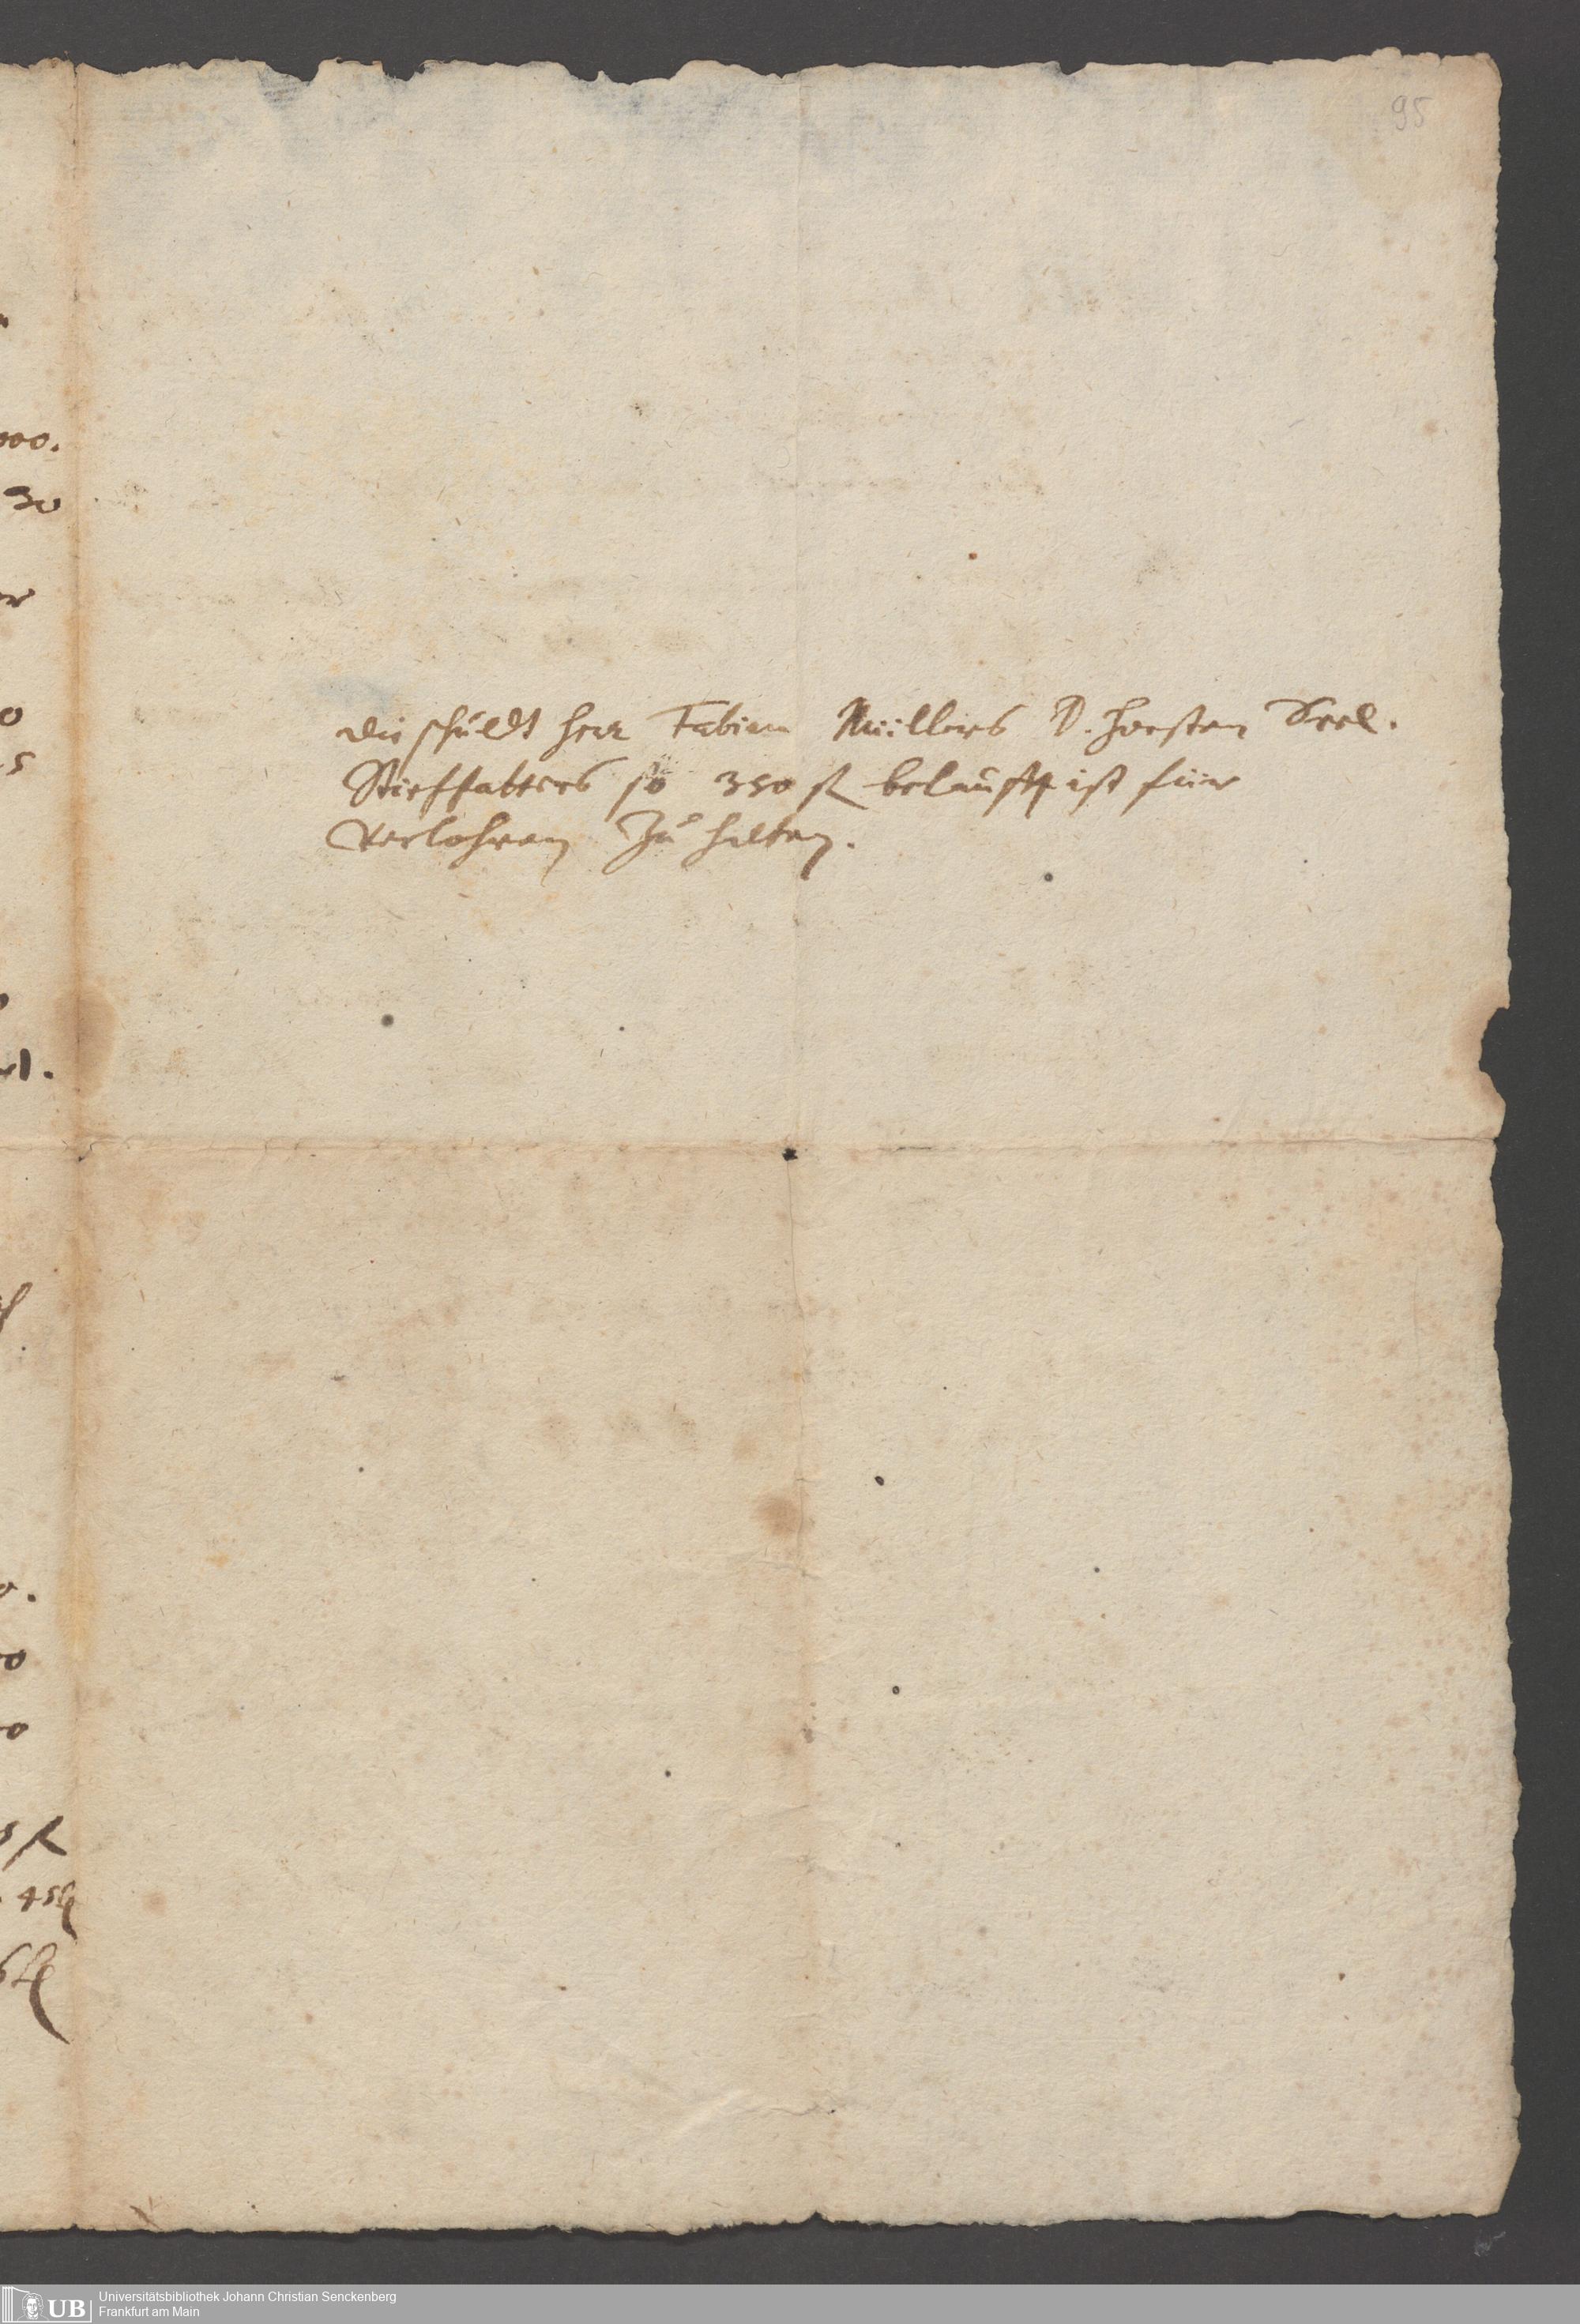 95
000.
30
die schuldt herr Fabian Müllers D. Horsten Seel.
Stieffatters so 350 fl belaufft ist für
Verlohren zu halten.
UB
Universitätsbibliothek Johann Christian Senckenberg
Frankfurt am Main